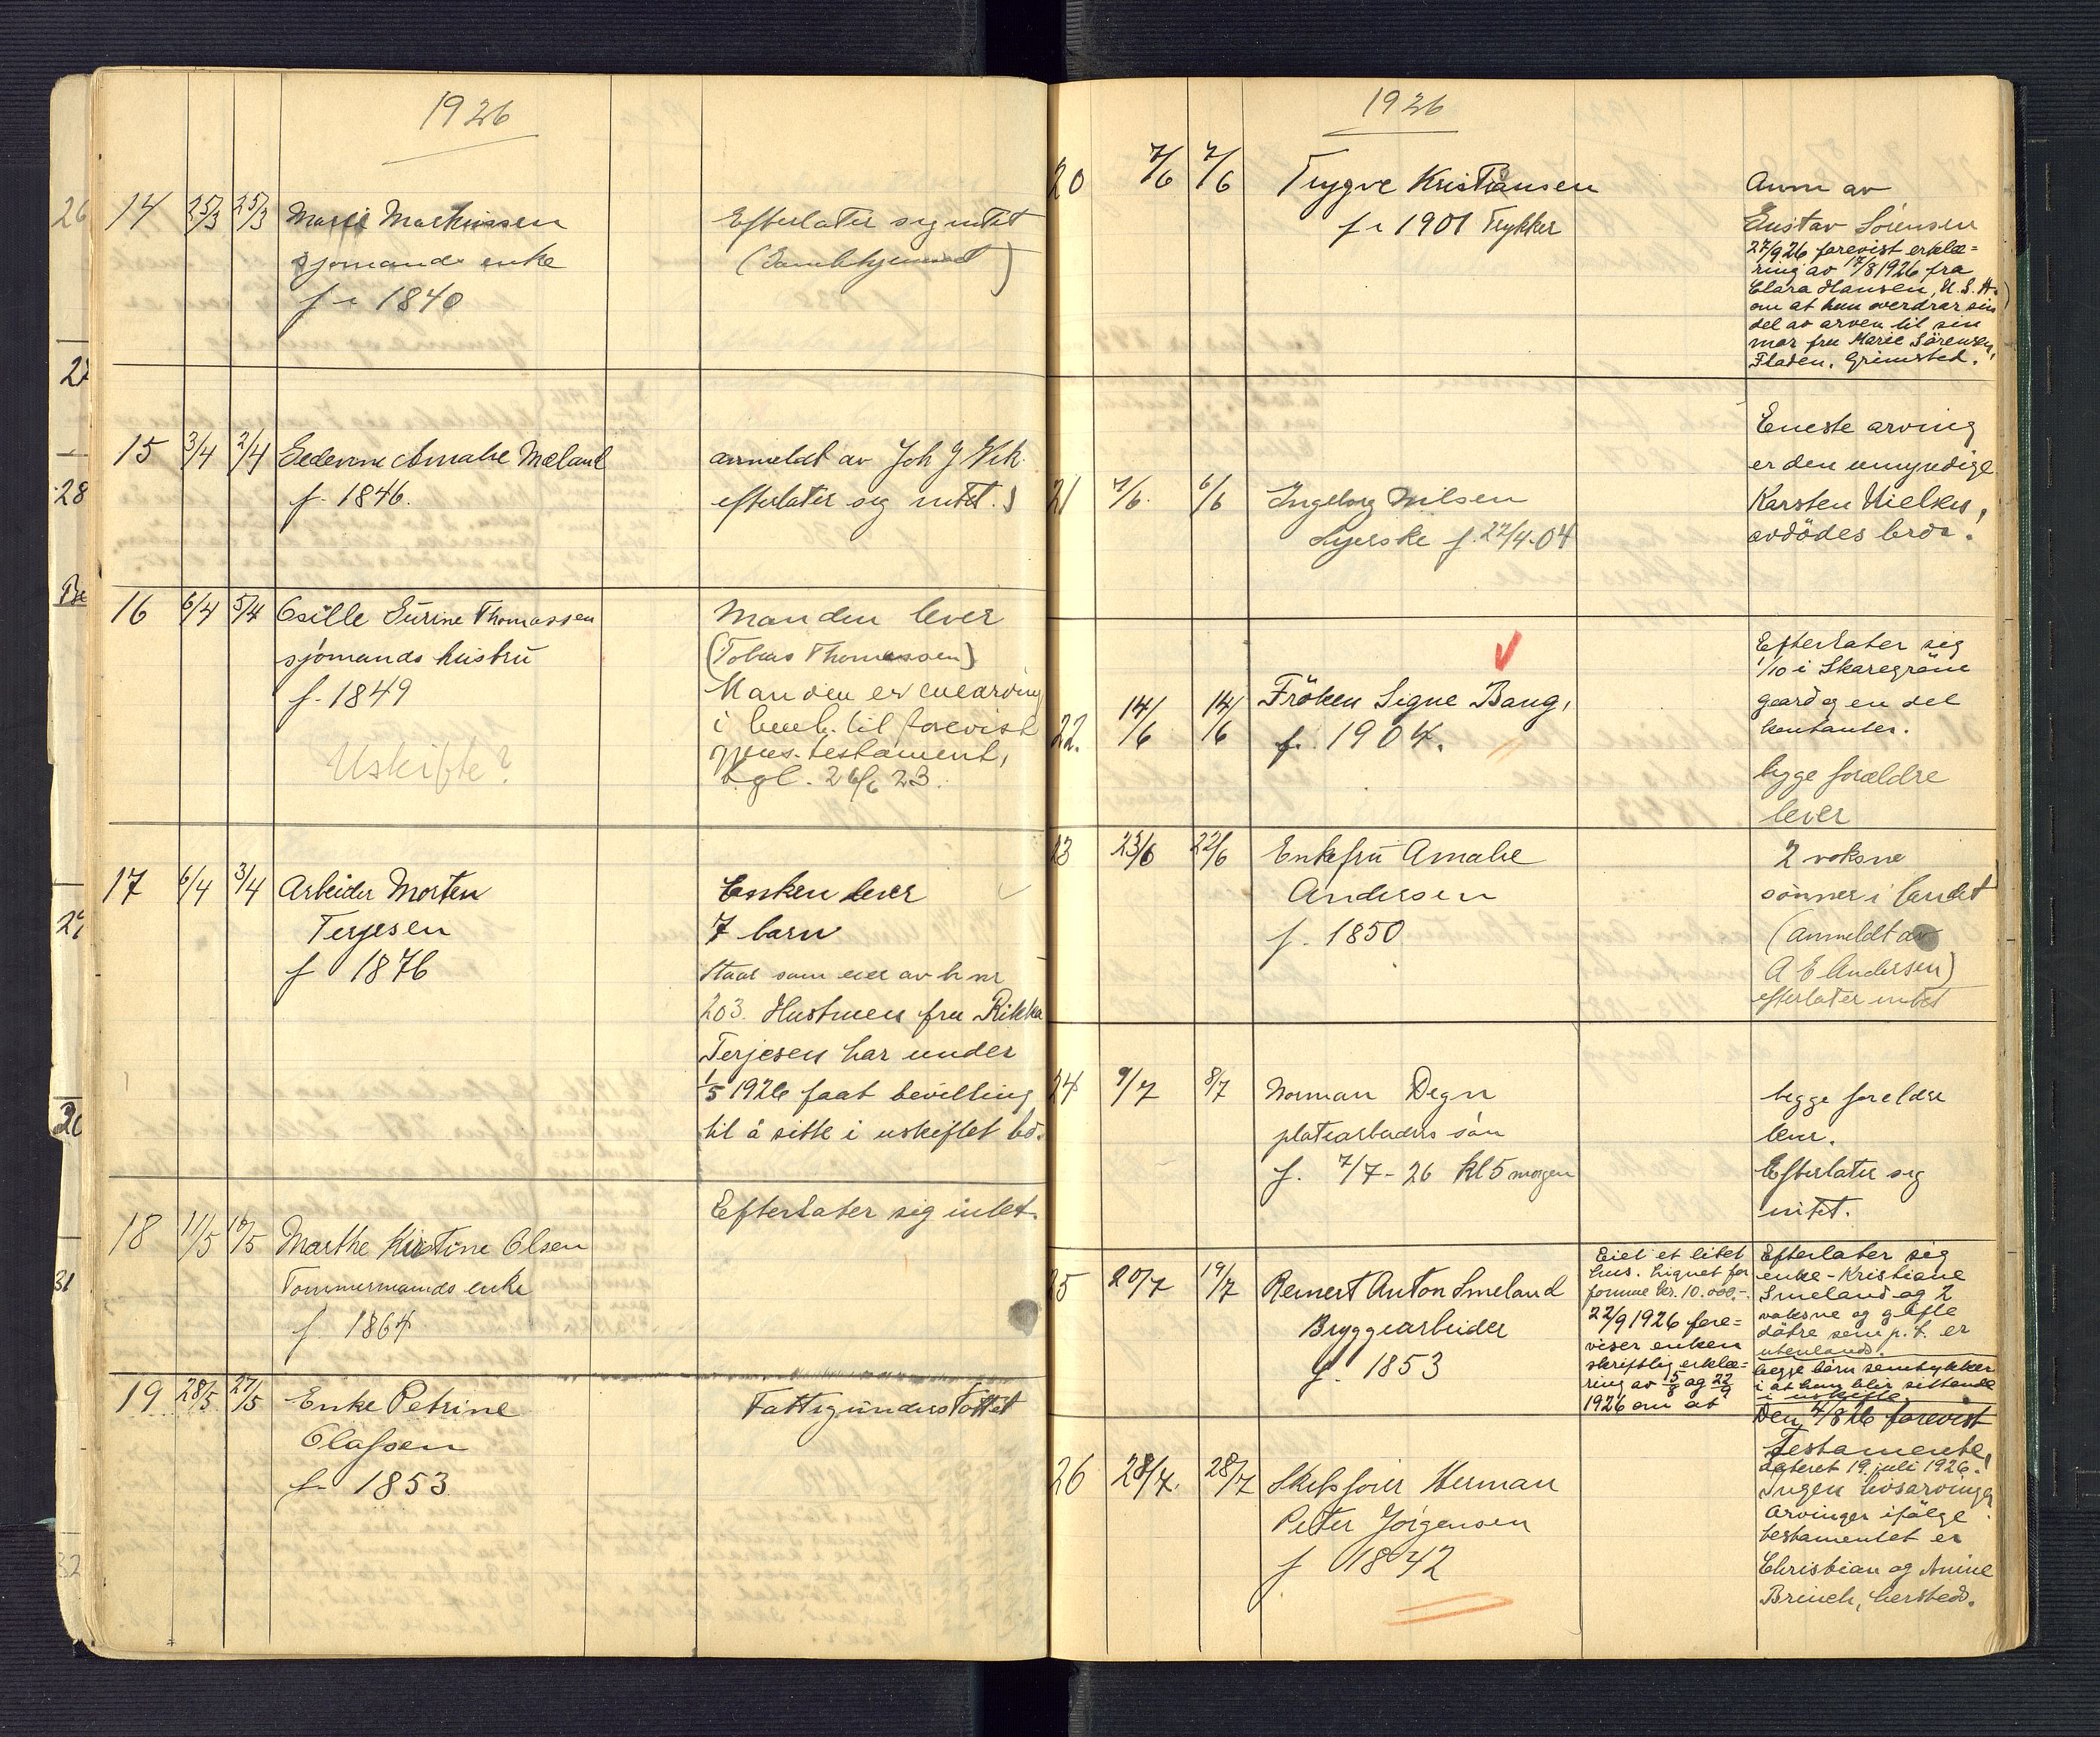 1926
14 25/3 25/3 Marie Markussen Efterlater sig intet
sjømands enke
f. 1840
15 3/4 2/4 Gedevine Amalie Mæland anmeldt av Joh J Vik
f. 1846. efterlater sig intet.
16 6/4 5/4 Osille Surine Thomassen Manden lever
sjömands hustru (Tobias Thomassen)
f. 1849 Manden er enearving
i henh. til forevist
gjens. testament,
Uskifte? tgl. 26/6 23.
17 6/4 3/4 Arbeider Morten Enken lever
Terjesen 7 barn
f 1876 Staar som eier av h nr
203. Hustruen fru Rikka
Terjesen har under
1/5 1926 faat bevilling
til å sitte i uskiftet bo.
Efterlater sig intet.
18 11/5 10/5 Marthe Kirstine Olsen
Tømmermands enke
f. 1864
19 28/5 27/5 Enke Petrine Fattigunderstøttet
Olafsen
f. 1853
1926
20 7/6 7/6 Trygve Kristiansen Anm av
f. 1901 Trykker Gustav Sörensen
27/9 26 forevist erklæ=
ring av 17/8 1926 fra
Clara Hansen, U.S.A.
om at hun overdrar sin
del av arven til sin
mor fru Marie Sörensen,
Fladen, Grimstad.
Eneste arving
er den umyndige
21 7/6. 6/6 Ingeborg Nilsen Karsten Nielsen,
Syerske f. 22/4-04 avdödes bror.
Efterlater sig
1/10 i Skaregröm
22. 14/6 14/6 Fröken Signe Bang, gaard og en del
f. 1904. kontanter.
begge forældre
lever
23 23/6 22/6 Enkefru Amalie 2 voksne
Andersen sønner i landet
f. 1850 (anmeldt av
A E Andersen)
efterlater intet
24 9/7 8/7 Norman Degn begge foreldre
platearbeiders søn lever.
f. 7/7-26 Kl 5 morgen Efterlater sig
intet.
25 20/7 19/7 Reinert Anton Smeland
Bryggearbeider
f. 1853
Eiet et litet
hus. Lignet for
formue kr. 10.000,-.
22/9 1926 fore=
viser enken
skriftlig erklæ=
ring av 15/8 og 22/9
1926 om at
Efterlater sig
enke - Kristiane
Smeland og 2
voksne og gifte
døtre som p.t. er
utenlands.
begge börn samtykker
i at hun blir sittende
i uskifte.
26 28/7. 28/7 Skipsfører Herman
Peter Jørgensen
f 1842
Den 4/8 26 forevist
Testamente,
dateret 19. juli 1926.
Ingen livsarvinger
Arvinger ifölge
testamentet er
Christian og Anine
Brinch, hersteds.
26
27
28
29
30
31
32